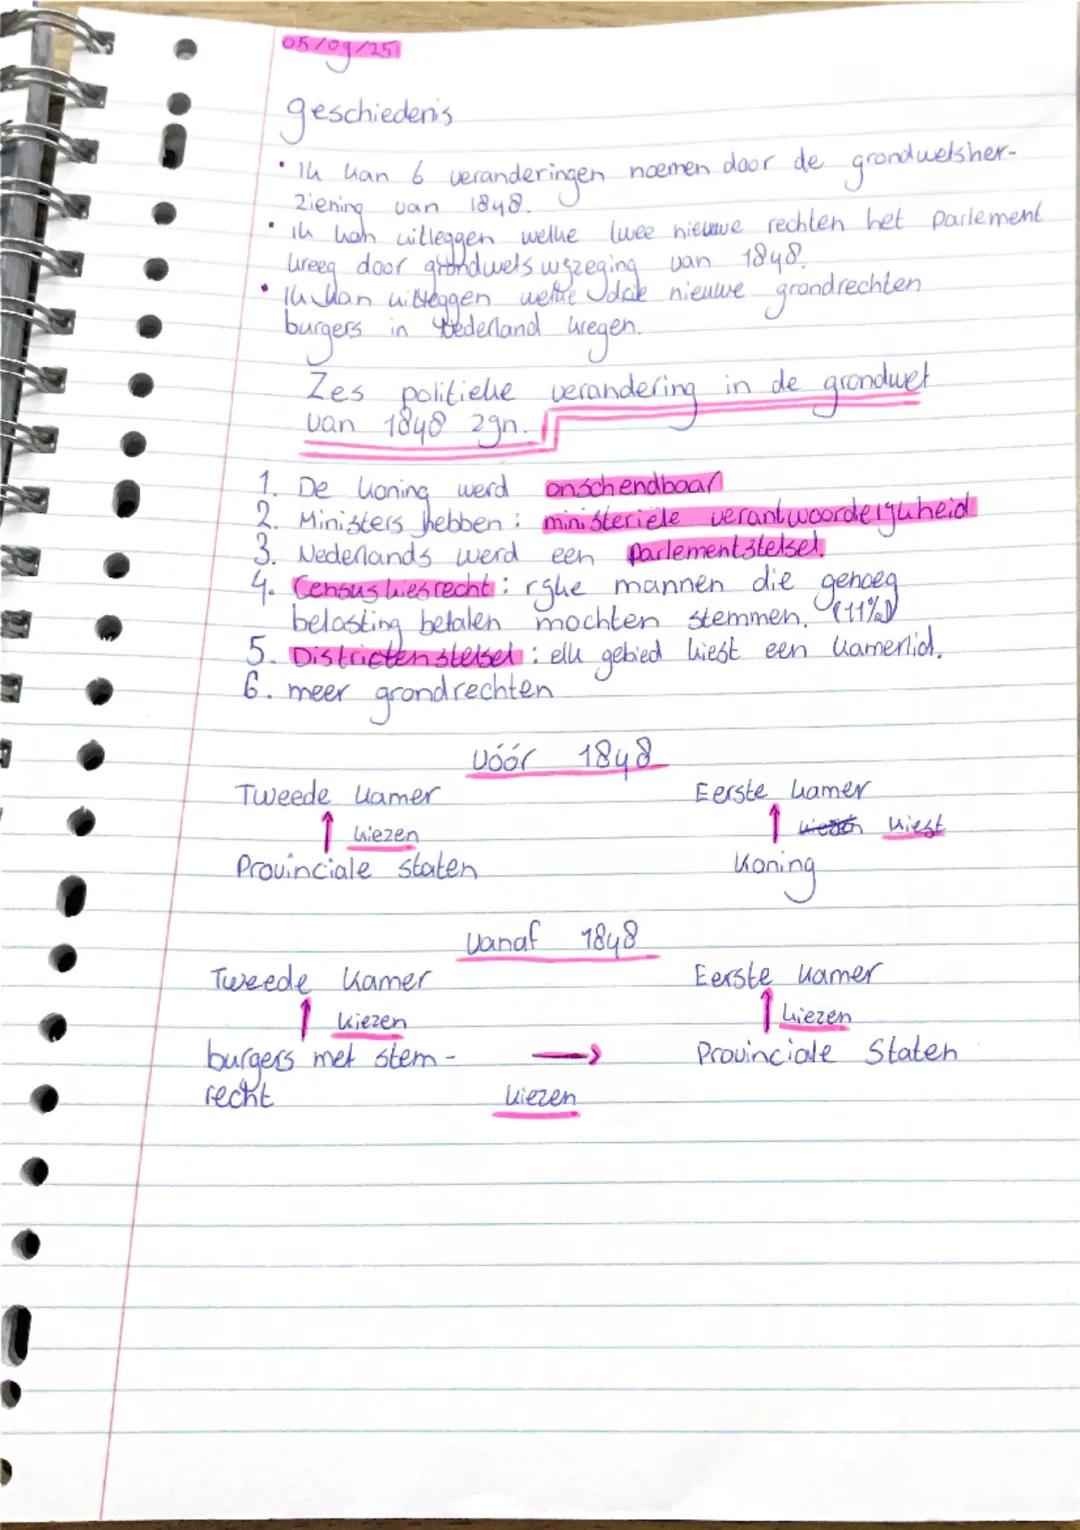 05/09/25
geschiedenis
• Ik kan 6 veranderingen noemen door de grondwetsher-
ziening van 1848.
• ik kan uitleggen welke twee nieuwe rechten het parlement
kreeg door grondwetswijzeging van 1848.
• Ik kan uitleggen welke drie nieuwe grondrechten
burgers in Nederland kregen.
Zes politieke verandering in de grondwet
van 1848 zijn.
1. De koning werd onschendbaar
2. Ministers hebben: ministeriele verantwoorderijkheid
3. Nederlands werd een parlementstelsel.
4. Census kiesrecht: rijke mannen die genoeg
belasting betalen mochten stemmen. (11%)
5. Districtenstelsel: elk gebied kiest een kamerlid.
6. meer grondrechten
vóór 1848
Tweede kamer Eerste kamer
↑ kiezen ↑ kiezen kiest
Provinciale staten koning
vanaf 1848
Tweede kamer Eerste kamer
↑ kiezen ↑ kiezen
burgers met stem- → Provinciale Staten
recht kiezen